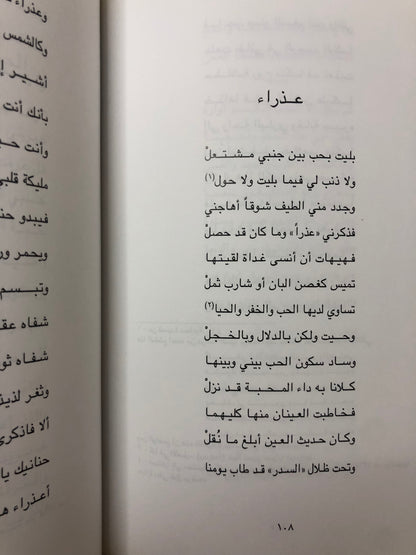 عـذراء
بليت بحب بين جنبي مشتعلْ
ولا ذنب لي فيما بليت ولا حول(١)
وجدد مني الطيف شوقاً أهاجني
فذكرني «عذراً» وما كان قد حصلْ
فهيهات أن أنسى غداة لقيتها
تميس كغصن البان أو شارب ثملْ
تساوي لديها الحب والخفر والحيا(٢)
وحيت ولكن بالدلال وبالخجلْ
وساد سكون الحب بيني وبينها
كلانا به داء المحبة قد نزلْ
فخاطبت العينان منها كليهما
وكان حديث العين أبلغ ما نُقلْ
وتحت ظلال «السدر» قد طاب يومنا
١٠٨
وعذراء
وكالشمس
أشير إ
بأنك أنت
وأنت حب
مليكة قلبي
فيبدو حنا
ويحمر ور
وتبسم
شفاه عقـ
شفاه ثو
وثغر لذيذ
ألا فاذكري
حنانيك يا
أعذراء هـ